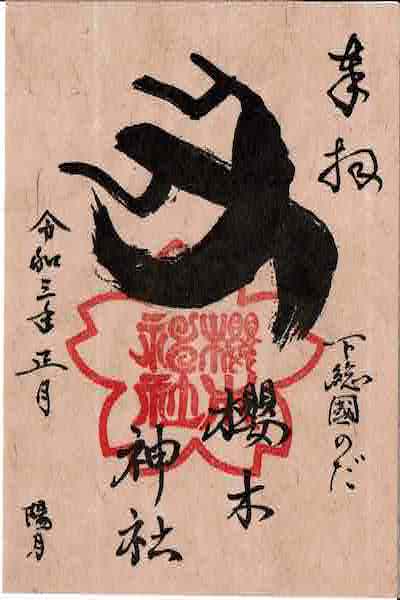 奉拝
下総國のだ
丑
櫻木
神社
櫻木
神社
令和三年正月
陽月